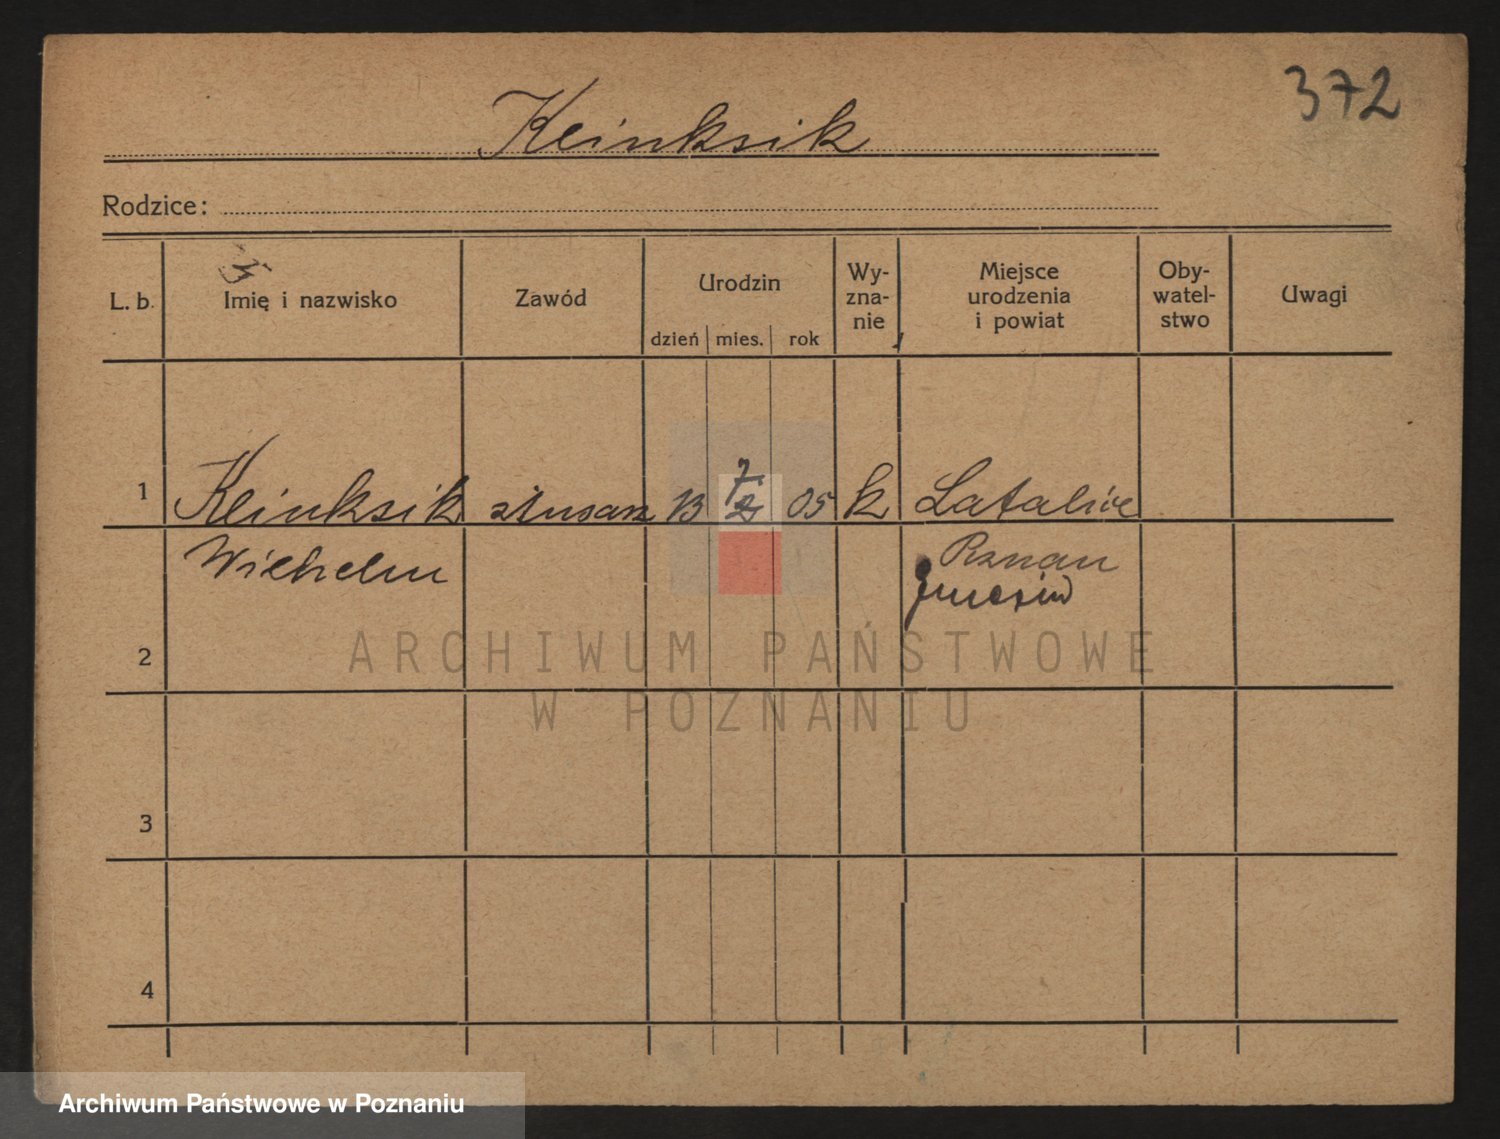 372
Kleinksik
Rodzice:
L. b. Imię i nazwisko Zawód Urodzin dzień mies. rok Wy-zna-nie Miejsce urodzenia i powiat Oby-watel-stwo Uwagi
1 Kleinksik ślusarz 13 7 05 k Latalice
Wilhelm Poznan
Gniezno
2
ARCHIWUM PAŃSTWOWE
W POZNANIU
3
4
Archiwum Państwowe w Poznaniu